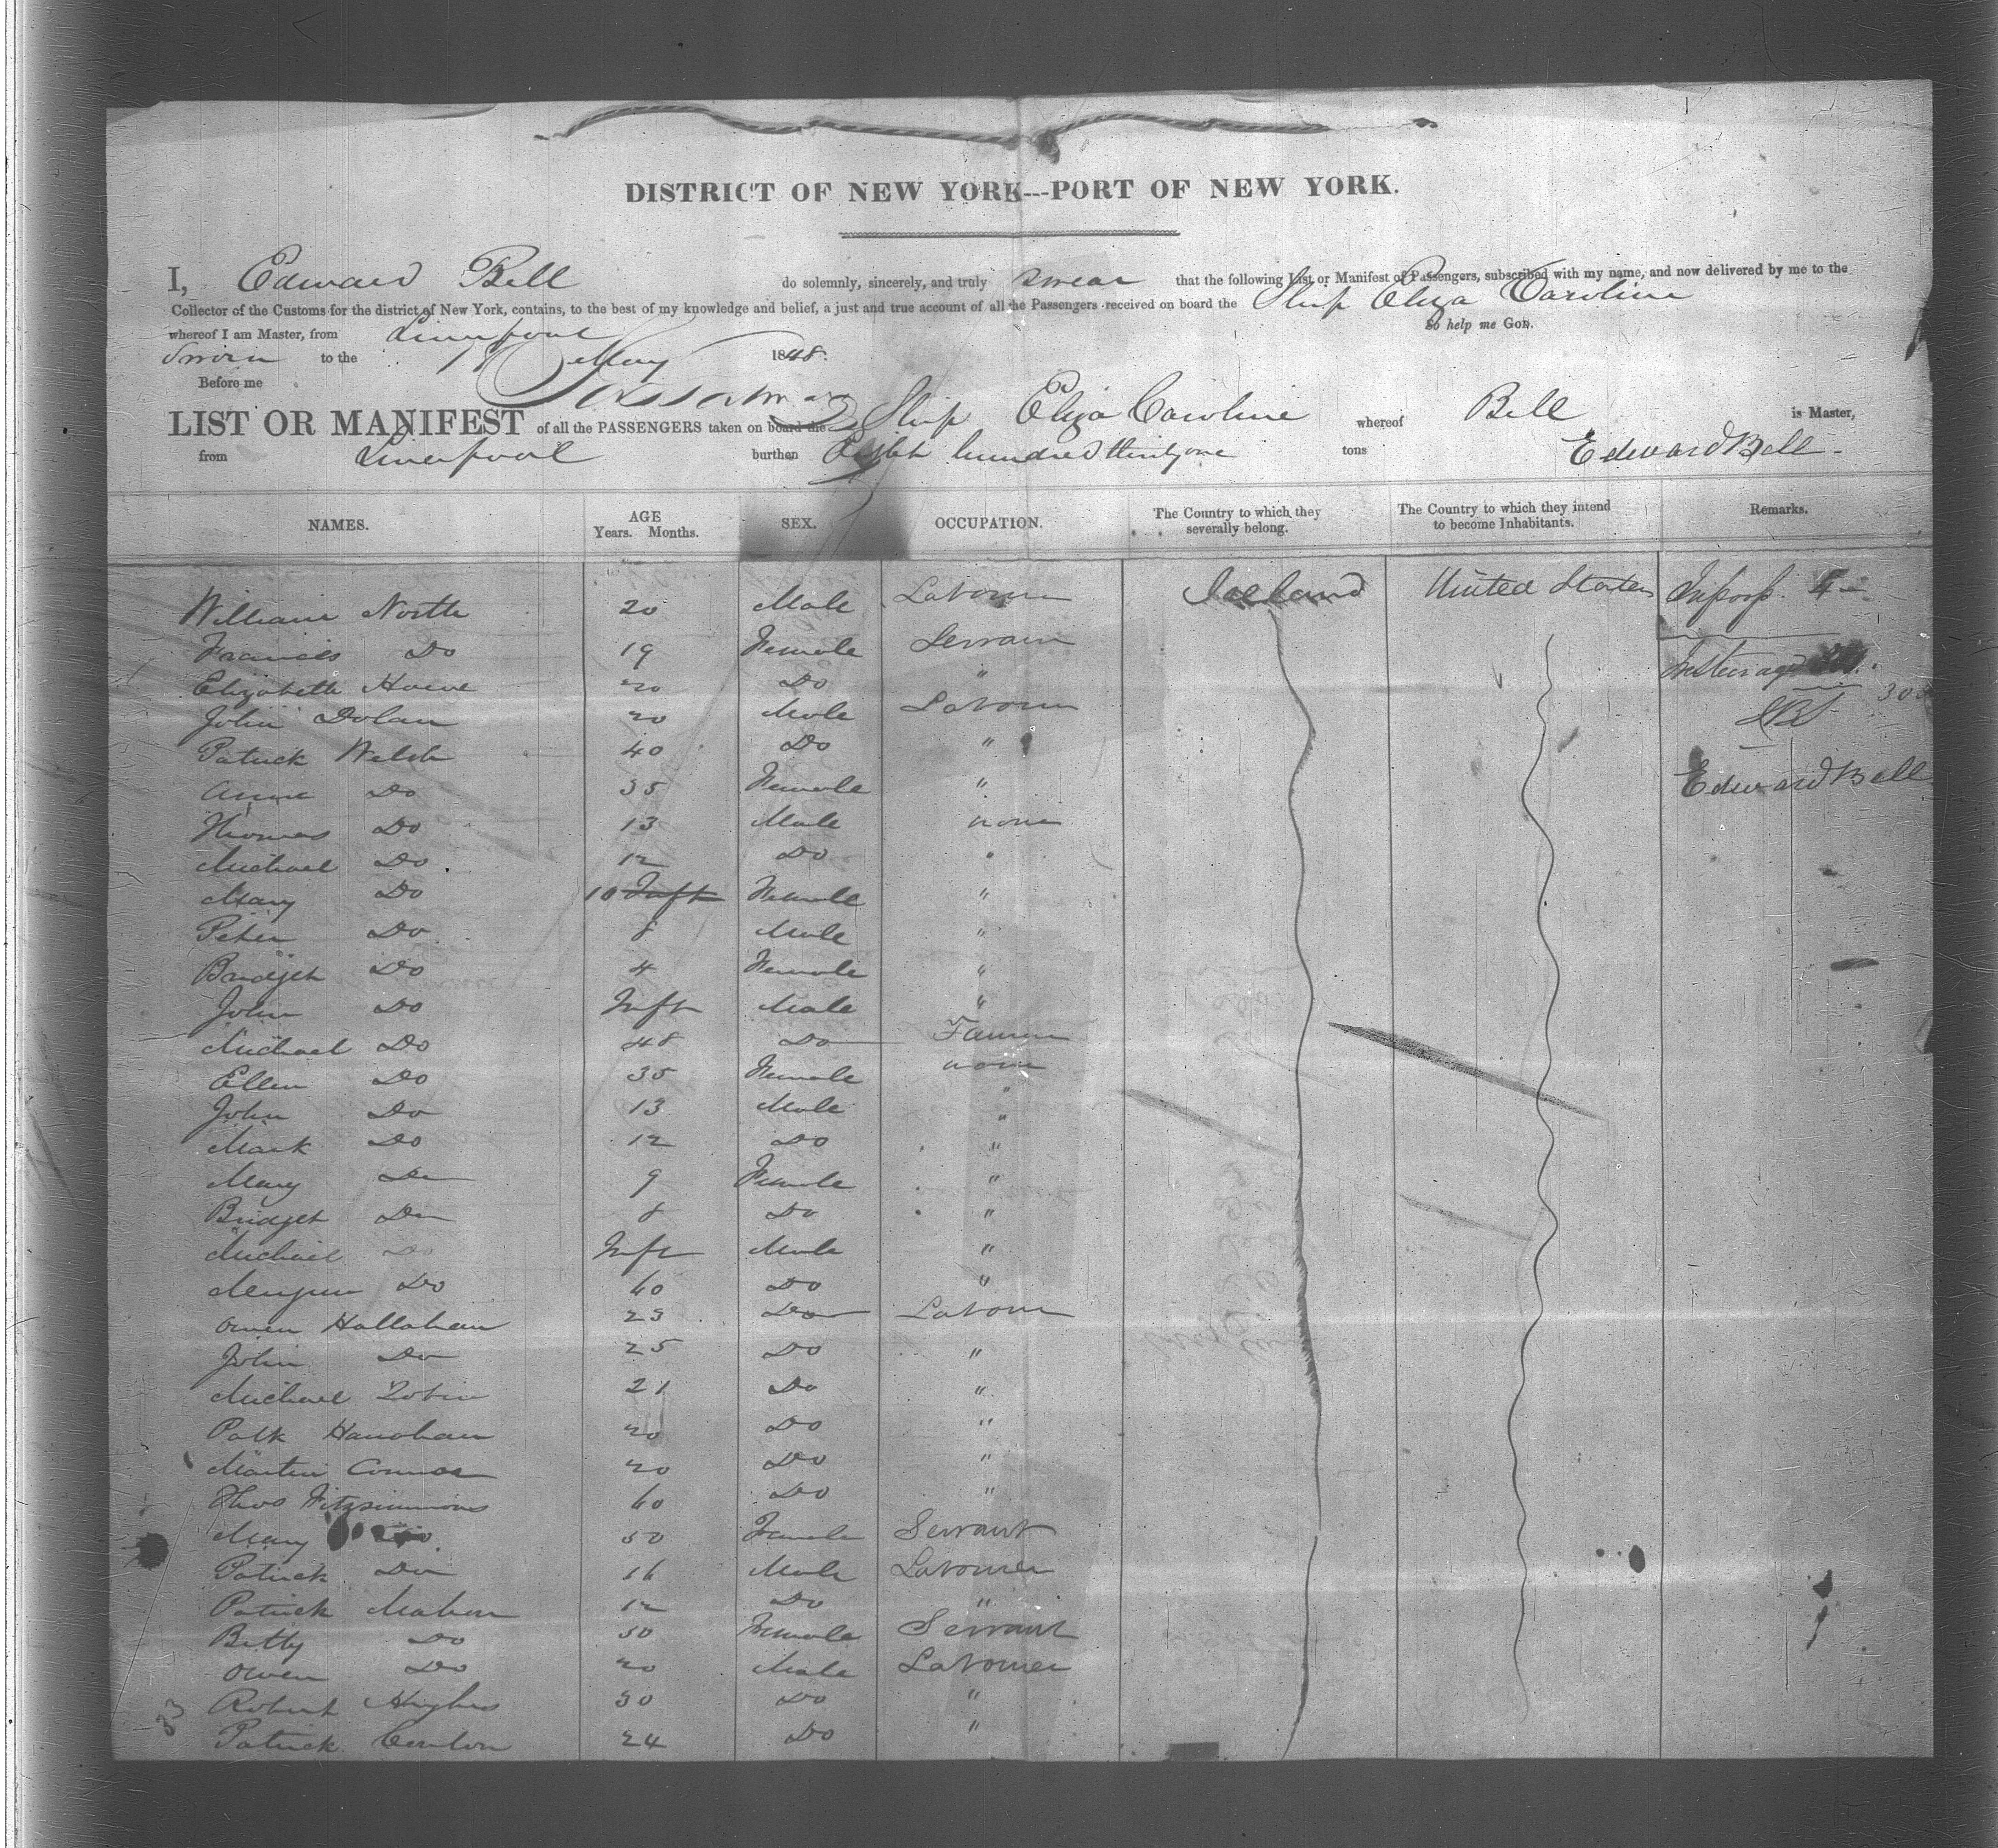 DISTRICT OF NEW YORK---PORT OF NEW YORK.
I, Edward Bell do solemnly, sincerely, and truly swear that the following List or Manifest of Passengers, subscribed with my name, and now delivered by me to the
Collector of the Customs for the district of New York, contains, to the best of my knowledge and belief, a just and true account of all the Passengers received on board the Ship Eliza Caroline
whereof I am Master, from Liverpool So help me God.
Sworn to the May 1848.
Before me
LIST OR MANIFEST of all the PASSENGERS taken on board the Ship Eliza Caroline whereof Bell is Master,
from Liverpool burthen Eight hundred thirty one tons Edward Bell
NAMES. AGE Years. Months. SEX. OCCUPATION. The Country to which they severally belong. The Country to which they intend to become Inhabitants. Remarks.
William North 20 Male Labourer Ireland United States
Francis Do 19 Female Servant
Elizabeth Howe 20 Do "
John Dolan 20 Male Labourer
Patrick Welsh 40 Do "
Edward Bell
Anne Do 35 Female "
Thomas Do 13 Male none
Michael Do 12 Do "
Mary Do 10 Inft Female "
Peter Do 8 Male "
Bridget Do 4 Female "
John Do Inft Male "
Michael Do 48 Do Farmer
Ellen Do 35 Female none
John Do 13 Male "
Mark Do 12 Do "
Mary Do 9 Female "
Bridget Do 8 Do "
Michael Do Inft Male "
Do 60 Do "
Owen Hallahan 23 Do Labour
John Do 25 Do "
Michael Tobin 21 Do "
Patk Hanahan 20 Do "
Martin Connor 20 Do "
Thos Fitzsimmons 60 Do "
Mary Do 50 Female Servant
Patrick Do 16 Male Labourer
Patrick Mahon 12 Do "
Betty Do 50 Female Servant
Owen Do 20 Male Labourer
Robert Hughes 30 Do "
Patrick Conlon 24 Do "
33